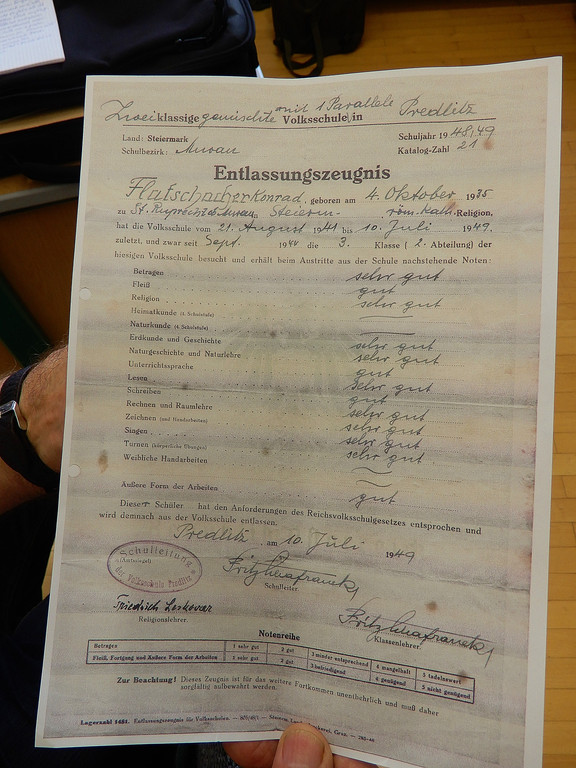 Zweiklassige gemischte mit 1 Parallele Volksschule in Predlitz
Land: Steiermark
Schuljahr 1948/49
Schulbezirk: Murau
Katalog-Zahl 21
Entlassungszeugnis
Flatschacher Konrad, geboren am 4. Oktober 1935
zu St. Ruprecht ob Murau Steierm- röm. kath.-Religion,
hat die Volksschule vom 21. August 1941 bis 10. Juli 1949,
zuletzt, und zwar seit Sept. 1944 die 3. Klasse ( 2. Abteilung) der
hiesigen Volksschule besucht und erhält beim Austritte aus der Schule nachstehende Noten:
Betragen sehr gut
Fleiß gut
Religion sehr gut
Heimatkunde (4. Schulstufe)
Naturkunde (4. Schulstufe)
Erdkunde und Geschichte sehr gut
Naturgeschichte und Naturlehre sehr gut
Unterrichtssprache gut
Lesen sehr gut
Schreiben gut
Rechnen und Raumlehre sehr gut
Zeichnen (und Handarbeiten) sehr gut
Singen sehr gut
Turnen (körperliche Übungen) sehr gut
Weibliche Handarbeiten
Äußere Form der Arbeiten gut
Dieser Schüler hat den Anforderungen des Reichsvolksschulgesetzes entsprochen und
wird demnach aus der Volksschule entlassen.
Predlitz, am 10. Juli 1949
Schulleitung
(Amtssiegel)
der Volksschule Predlitz
Schulleiter
Friedrich
Religionslehrer.
Klassenlehrer.
Notenreihe
Betragen 1 sehr gut 2 gut 3 minder entsprechend 4 mangelhaft 5 tadelnswert
Fleiß, Fortgang und Äußere Form der Arbeiten 1 sehr gut 2 gut 3 befriedigend 4 genügend 5 nicht genügend
Zur Beachtung! Dieses Zeugnis ist für das weitere Fortkommen unentbehrlich und muß daher
sorgfältig aufbewahrt werden.
Lagerzahl 1481. Entlassungszeugnis für Volksschulen.